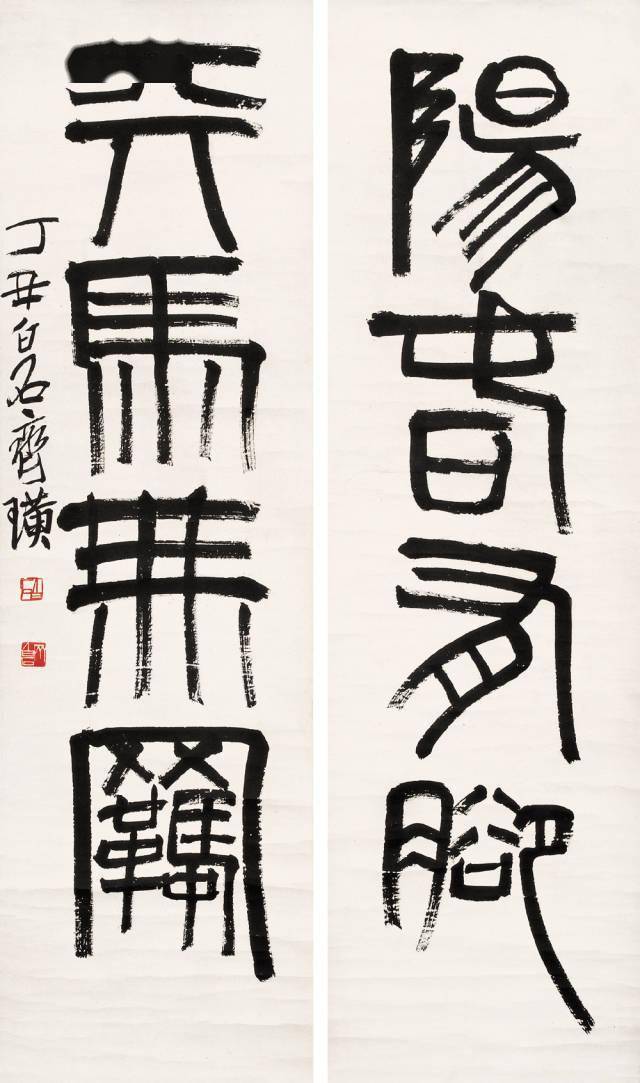 陽春有腳
馬無羈
丁丑白石齊璜